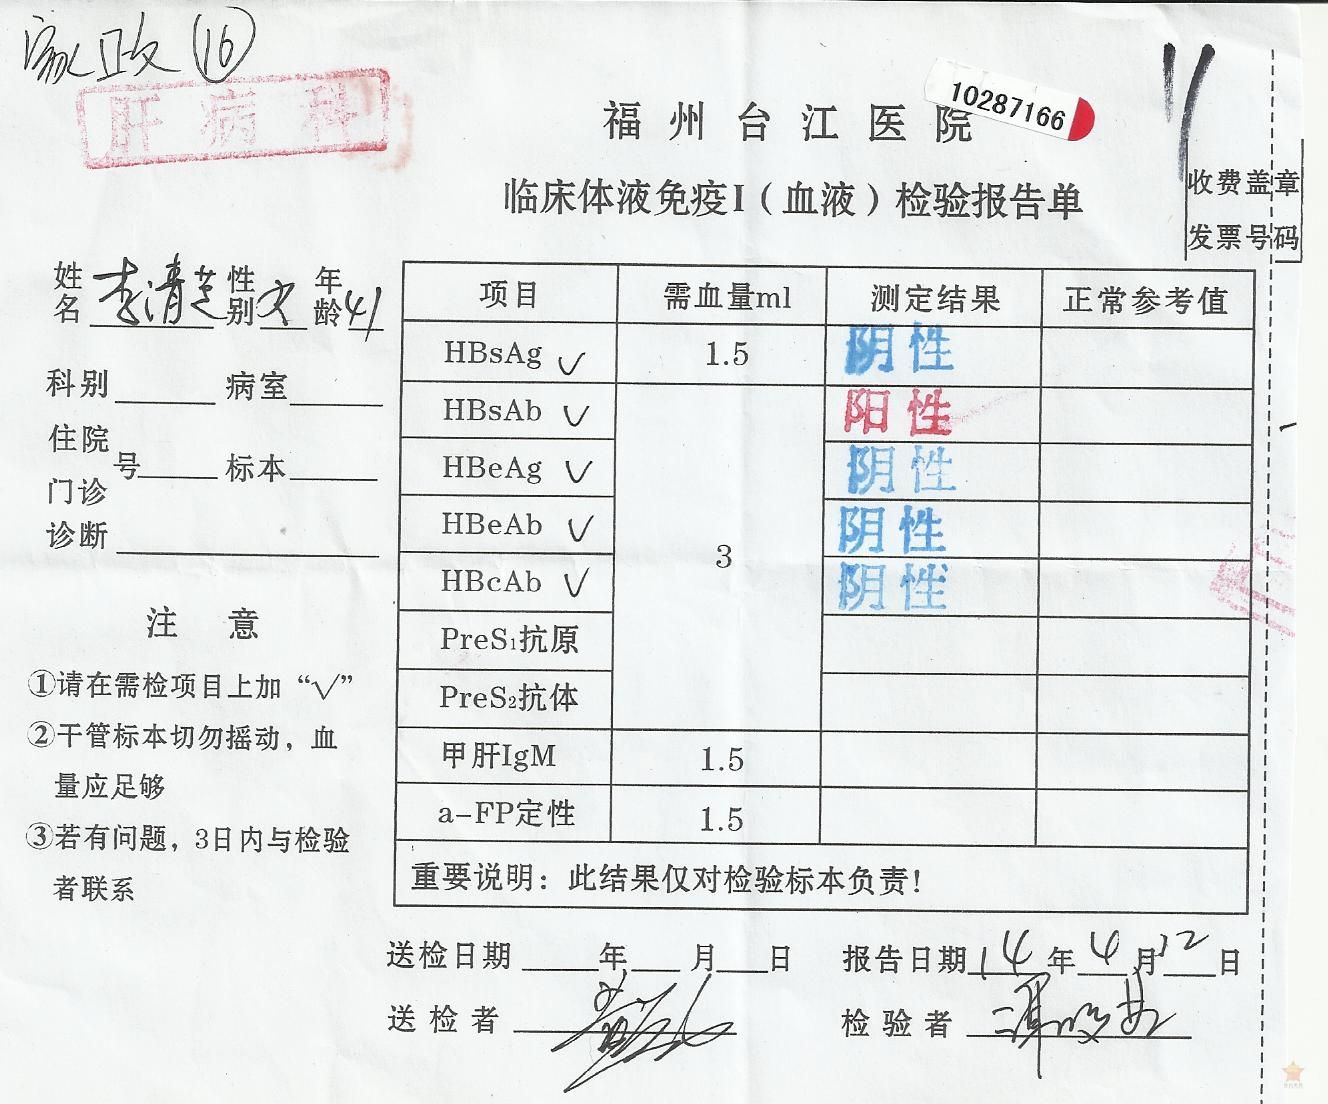 家政 (16)
肝病科
10287166
福州台江医院
临床体液免疫I（血液）检验报告单
收费盖章
发票号码
姓名 李清芝 性别 女 年龄 41
科别 病室
住院
门诊
号 标本
诊断
注 意
①请在需检项目上加“√”
②干管标本切勿摇动，血
量应足够
③若有问题，3日内与检验
者联系
项目 需血量ml 测定结果 正常参考值
HBsAg √ 1.5 阴性
HBsAb √ 阳性
HBeAg √ 阴性
HBeAb √ 阴性
3
HBcAb √ 阴性
PreS₁抗原
PreS₂抗体
甲肝IgM 1.5
a-FP定性 1.5
重要说明：此结果仅对检验标本负责！
送检日期 年 月 日 报告日期 14 年 4 月 12 日
送检者 检验者